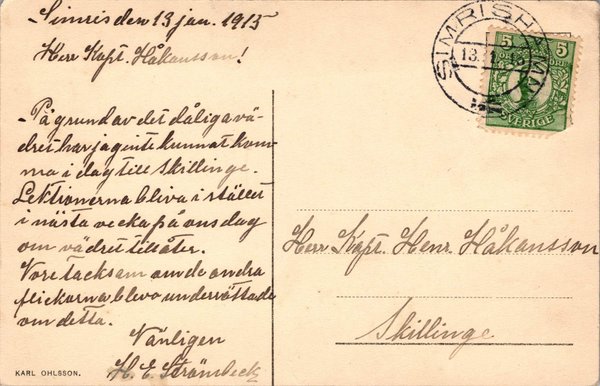 Simris den 13 jan. 1915
Herr Kapt. Håkansson!
- På grund av det dåliga vä-
dret har jag inte kunnat kom-
ma i dag till Skillinge.
Lektionerna bliva i stället
i nästa vecka på onsdag
om vädret tillåter.
Vore tacksam om de andra
flickorna blevo underrättade
om detta.
Vänligen
H. E. Strömbeck
KARL OHLSSON.
SIMRISHAMN
13. 1. 15
5 5
SVERIGE
Herr Kapt. Henr. Håkansson
Skillinge